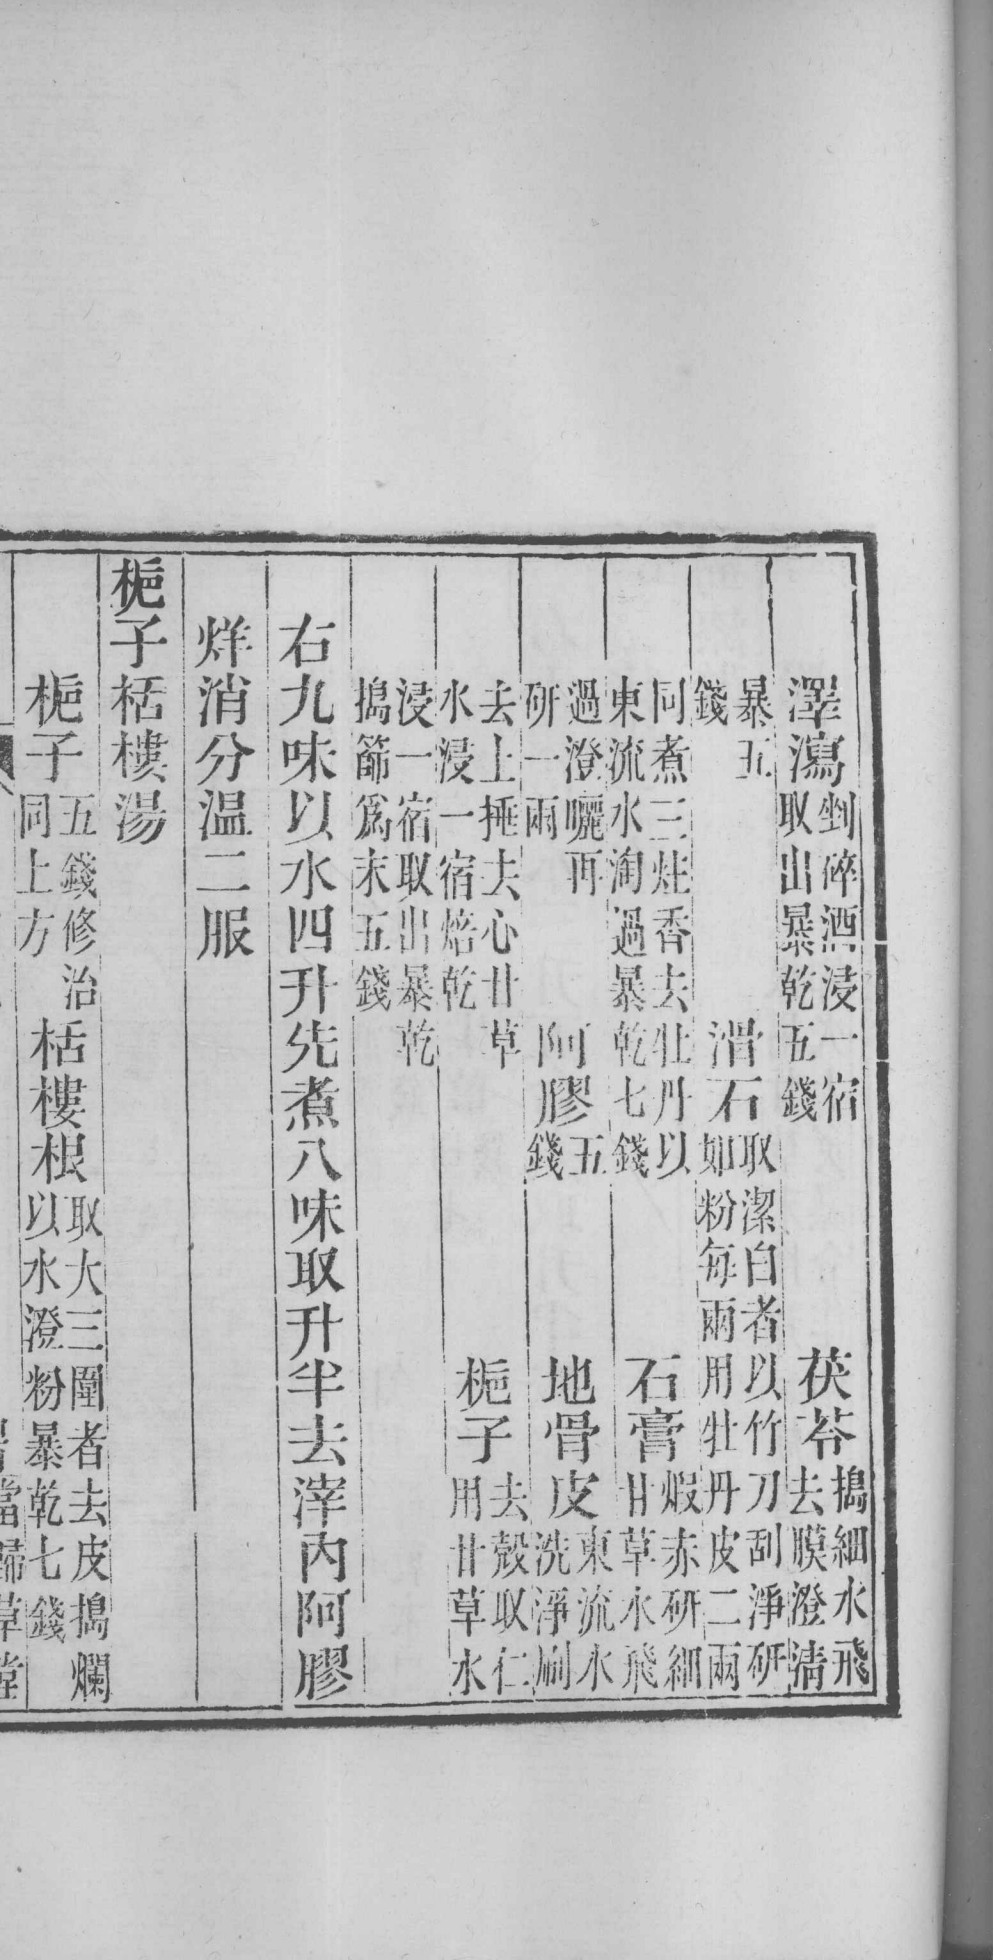 澤瀉剉碎酒浸一宿取出暴乾五錢茯苓搗細水飛去膜澄清
暴五錢滑石取潔白者以竹刀刮淨研如粉每兩用牡丹皮二兩
同煮三炷香去牡丹以東流水淘過暴乾七錢石膏煅赤研細甘草水飛
過澄曬再研一兩阿膠五錢地骨皮東流水洗淨刷
去上捶去心甘草水浸一宿焙乾梔子去殼取仁用甘草水
浸一宿取出暴乾搗篩爲末五錢
右九味以水四升先煮八味取升半去滓內阿膠
烊消分温二服
梔子栝樓湯
梔子五錢修治同上方栝樓根取大三圍者去皮搗爛以水澄粉暴乾七錢